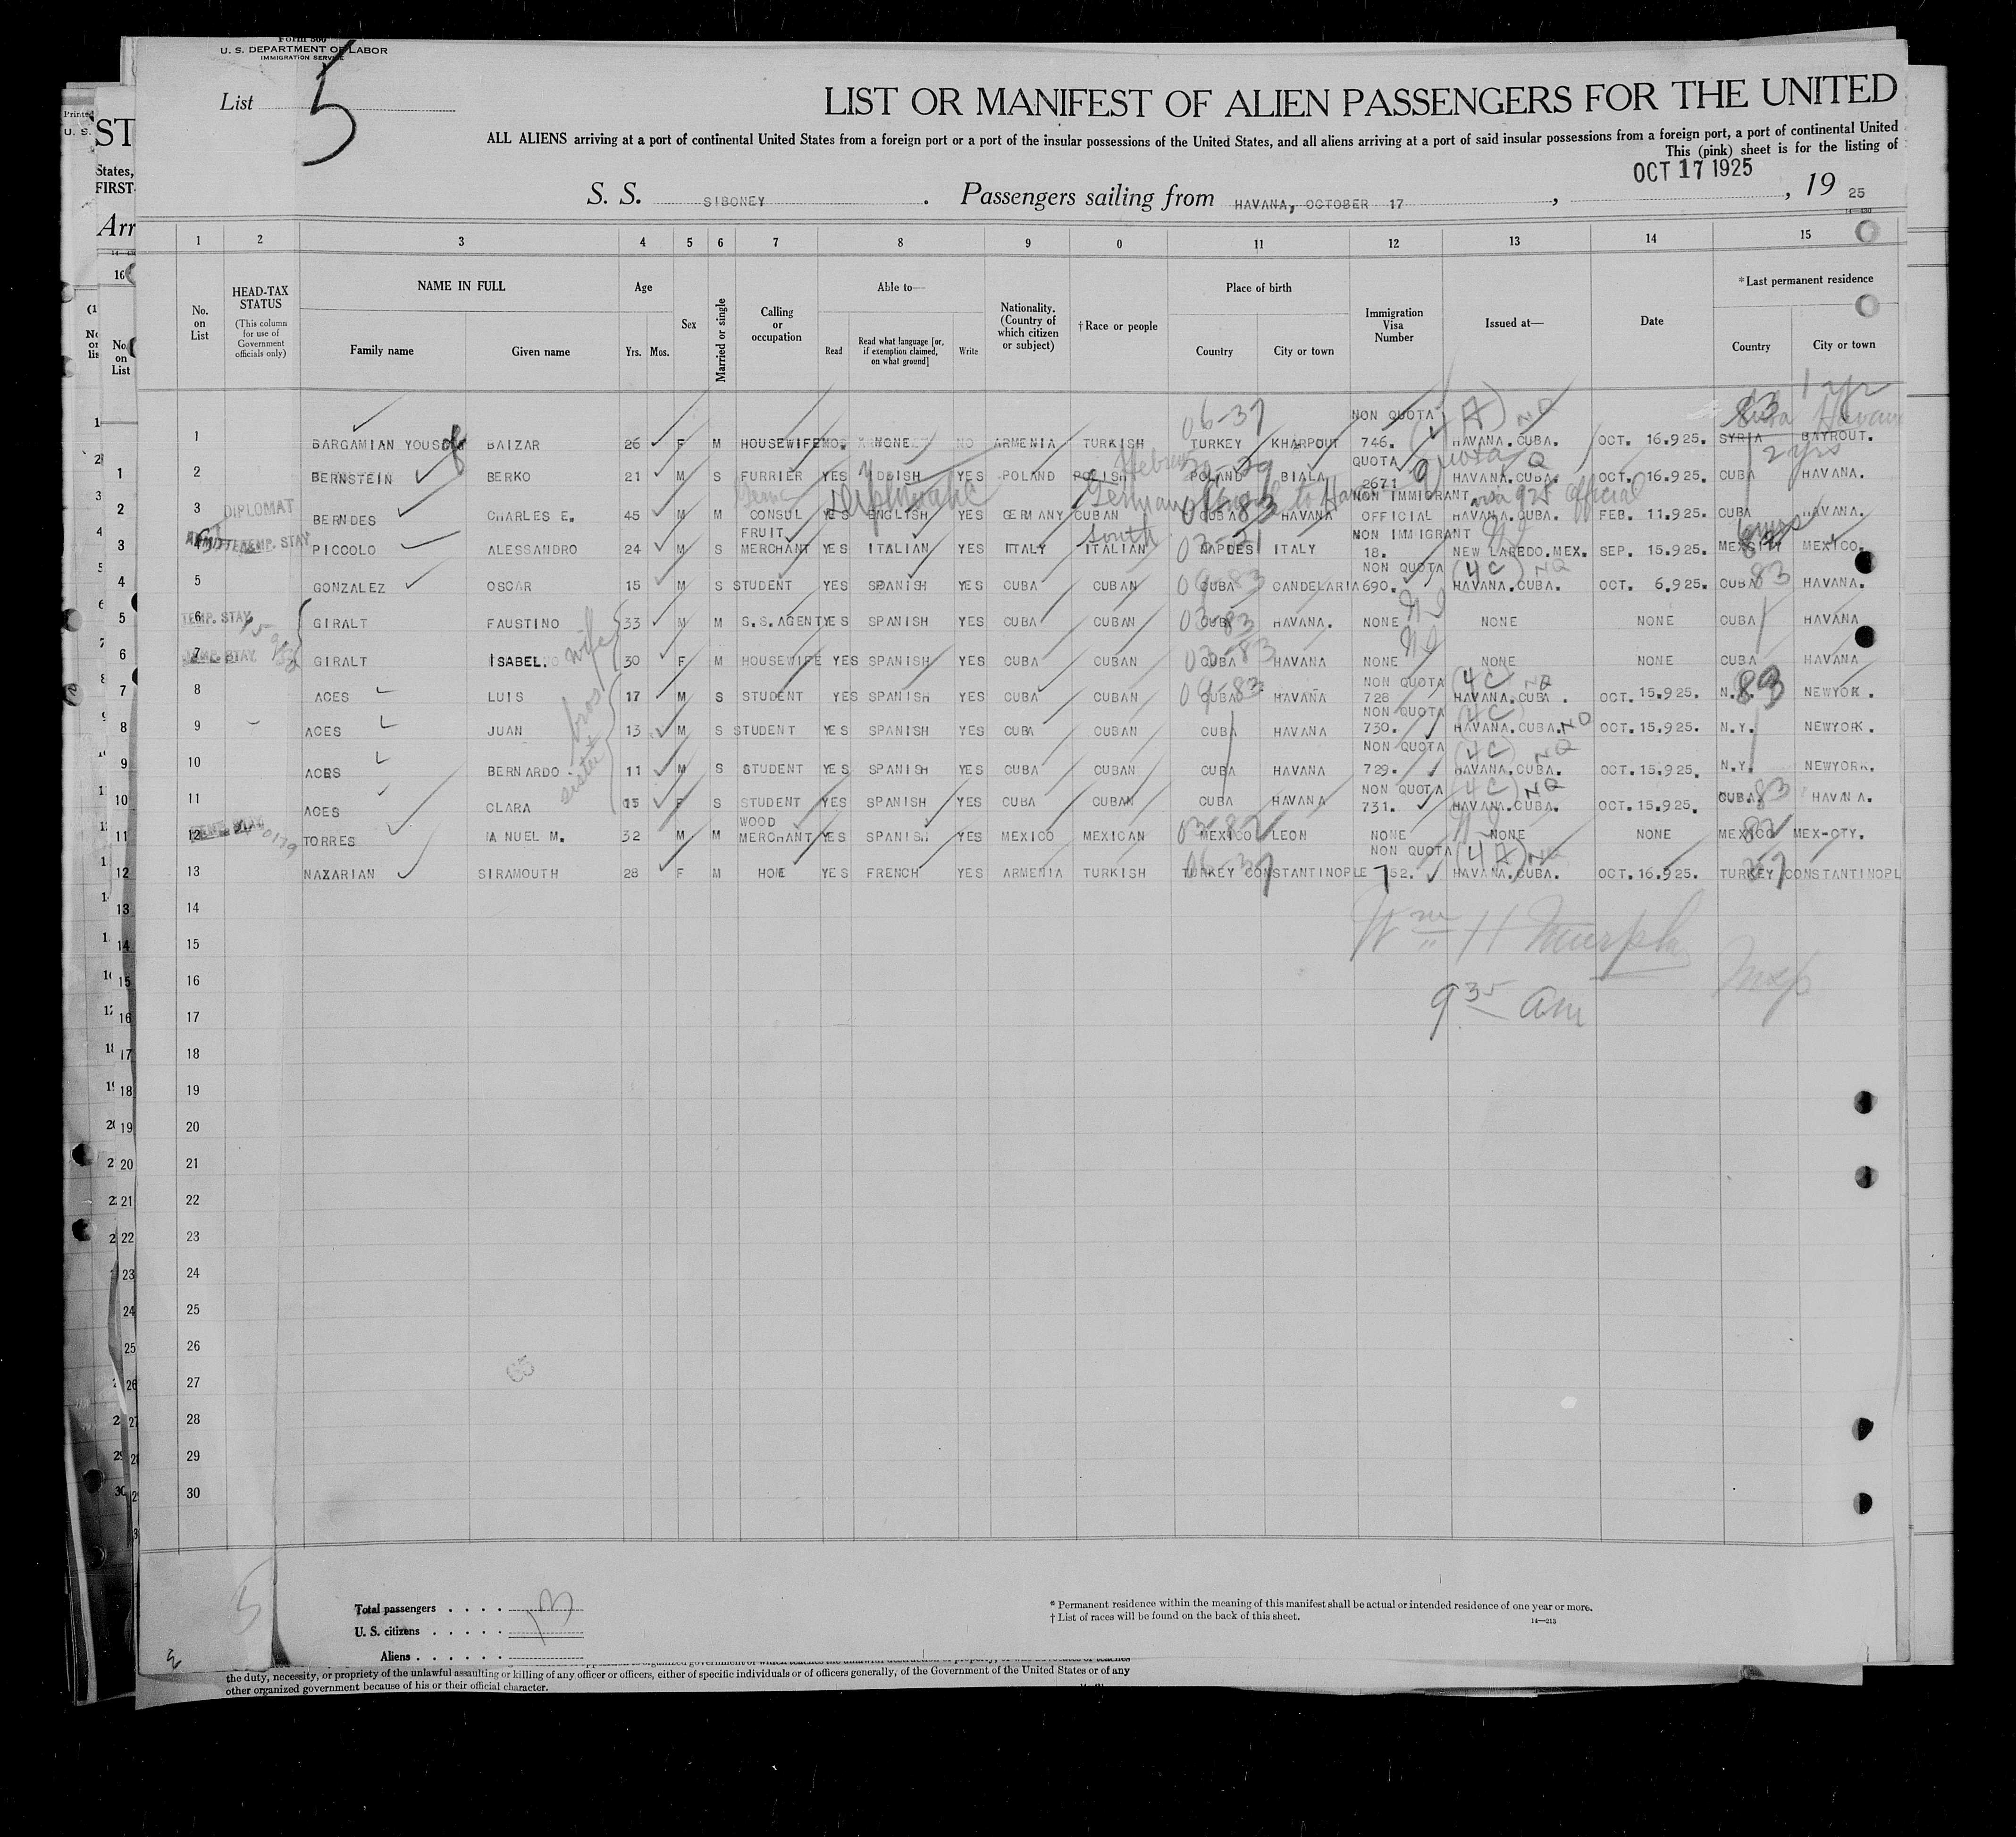 Form 500
U. S. DEPARTMENT OF LABOR
IMMIGRATION SERVICE
List 5
LIST OR MANIFEST OF ALIEN PASSENGERS FOR THE UNITED
ALL ALIENS arriving at a port of continental United States from a foreign port or a port of the insular possessions of the United States, and all aliens arriving at a port of said insular possessions from a foreign port, a port of continental United
This (pink) sheet is for the listing of
OCT 17 1925
S. S. SIBONEY . Passengers sailing from HAVANA, OCTOBER 17 , , 19 25
1 2 3 4 5 6 7 8 9 0 11 12 13 14 15
No. on List
HEAD-TAX STATUS
(This column for use of Government officials only)
NAME IN FULL
Family name Given name
Age
Yrs. Mos.
Sex
Married or single
Calling or occupation
Able to—
Read
Read what language [or, if exemption claimed, on what ground]
Write
Nationality. (Country of which citizen or subject)
†Race or people
Place of birth
Country City or town
Immigration Visa Number
Issued at—
Date
*Last permanent residence
Country City or town
06-37 NON QUOTA (4A) NQ 83 Havana 1 yr
1 BARGAMIAN YOUSOF BAIZAR 26 F M HOUSEWIFE NO. NONE NO ARMENIA TURKISH TURKEY KHARPOUT 746. HAVANA.CUBA. OCT. 16.925. SYRIA BAYROUT.
Hebrew QUOTA Quota Q 2 yrs
2 BERNSTEIN BERKO 21 M S FURRIER YES YIDDISH YES POLAND POLISH POLAND BIALA 2671 HAVANA.CUBA. OCT. 16.925. CUBA HAVANA.
DIPLOMAT Diplomatic German NON IMMIGRANT visa 925 official
3 BERNDES CHARLES E. 45 M M CONSUL YES ENGLISH YES GERMANY CUBAN CUBA HAVANA OFFICIAL HAVANA.CUBA. FEB. 11.925. CUBA HAVANA.
TEMP. STAY FRUIT South 03-21 NON IMMIGRANT
PICCOLO ALESSANDRO 24 M S MERCHANT YES ITALIAN YES ITALY ITALIAN NAPLES ITALY 18. NEW LAREDO.MEX. SEP. 15.925. MEXICO.
NON QUOTA (4C) NQ
5 GONZALEZ OSCAR 15 M S STUDENT YES SPANISH YES CUBA CUBAN CUBA CANDELARIA 690. HAVANA.CUBA. OCT. 6.925. CUBA 83 HAVANA.
6 TEMP. STAY GIRALT FAUSTINO 33 M M S.S.AGENT YES SPANISH YES CUBA CUBAN CUBA HAVANA. NONE NONE NONE CUBA HAVANA
7 TEMP. STAY GIRALT ISABEL. wife 30 F M HOUSEWIFE YES SPANISH YES CUBA CUBAN CUBA HAVANA NONE NONE NONE CUBA HAVANA
NON QUOTA (4C) NQ
8 ACES LUIS 17 M S STUDENT YES SPANISH YES CUBA CUBAN CUBA HAVANA 728 HAVANA.CUBA . OCT. 15.925. N.Y. 83 NEWYOK .
bros NON QUOTA (4C)
9 ACES JUAN 13 M S STUDENT YES SPANISH YES CUBA CUBAN CUBA HAVANA 730. HAVANA.CUBA. NQ OCT.15.925. N.Y. NEWYORK.
NON QUOTA (4C) NQ
10 ACES BERNARDO 11 M S STUDENT YES SPANISH YES CUBA CUBAN CUBA HAVANA 729. HAVANA.CUBA. OCT.15.925. N.Y. NEWYORK.
sister NON QUOTA (4C) NQ
11 ACES CLARA 15 F S STUDENT YES SPANISH YES CUBA CUBAN CUBA HAVANA 731. HAVANA.CUBA. OCT.15.925. CUBA 83 HAVANA.
WOOD
12 TORRES MANUEL M. 32 M M MERCHANT YES SPANISH YES MEXICO MEXICAN MEXICO LEON NONE NONE NONE MEXICO MEX-CTY.
NON QUOTA (4A) NQ
13 NAXARIAN SIRAMOUTH 28 F M HOME YES FRENCH YES ARMENIA TURKISH TURKEY CONSTANTINOPLE 752. HAVANA.CUBA. OCT.16.925. TURKEY CONSTANTINOPL
14
15
16
17
18
19
20
21
22
23
24
25
26
27
28
29
30
Wm H Murphy
Insp
9 35 am
Total passengers . . . . 13
U. S. citizens . . . . .
Aliens . . . . . .
* Permanent residence within the meaning of this manifest shall be actual or intended residence of one year or more.
† List of races will be found on the back of this sheet.
14—213
the duty, necessity, or propriety of the unlawful assaulting or killing of any officer or officers, either of specific individuals or of officers generally, of the Government of the United States or of any
other organized government because of his or their official character.